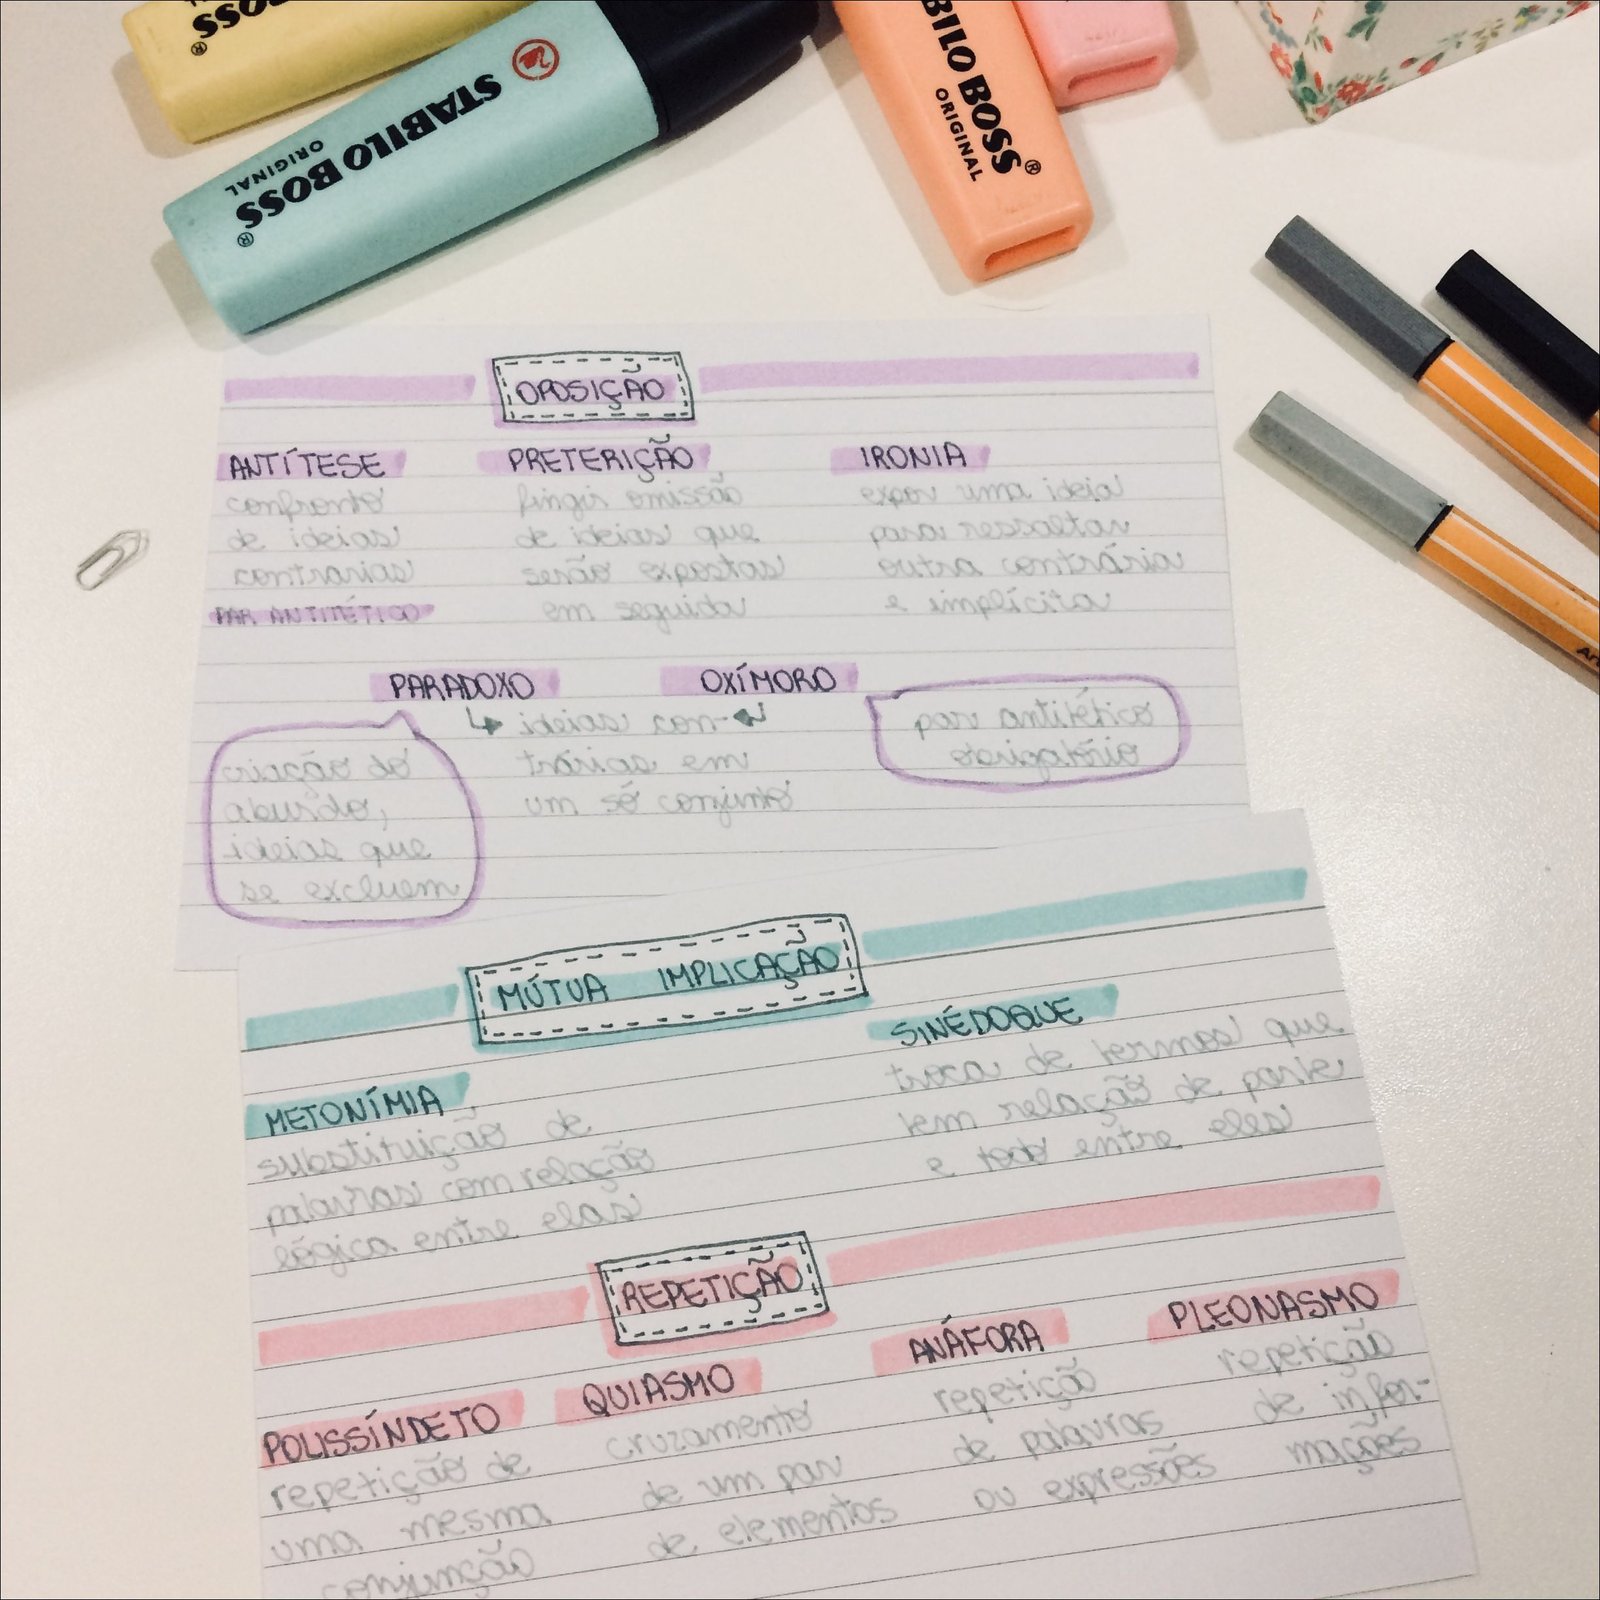 BOSS
®
STABILO BOSS
ORIGINAL
®
BILO BOSS
ORIGINAL
®
OPOSIÇÃO
ANTÍTESE
confronto
de ideias
contrarias
PAR ANTITÉTICO
PRETERIÇÃO
fingir omissão
de ideias que
serão expostas
em seguida
IRONIA
expor uma ideia
para ressaltar
outra contrária
e implícita
PARADOXO
OXÍMORO
↳ ideias con- ↲
trárias em
um só conjunto
criação do
aburdo,
ideias que
se excluem
par antitético
obrigatório
MÚTUA IMPLICAÇÃO
METONÍMIA
substituição de
palavras com relação
lógica entre elas
SINÉDOQUE
troca de termos que
tem relação de parte
e todo entre eles
REPETIÇÃO
POLISSÍNDETO
repetição de
uma mesma
conjunção
QUIASMO
cruzamento
de um par
de elementos
ANÁFORA
repetição
de palavras
ou expressões
PLEONASMO
repetição
de infor-
mações